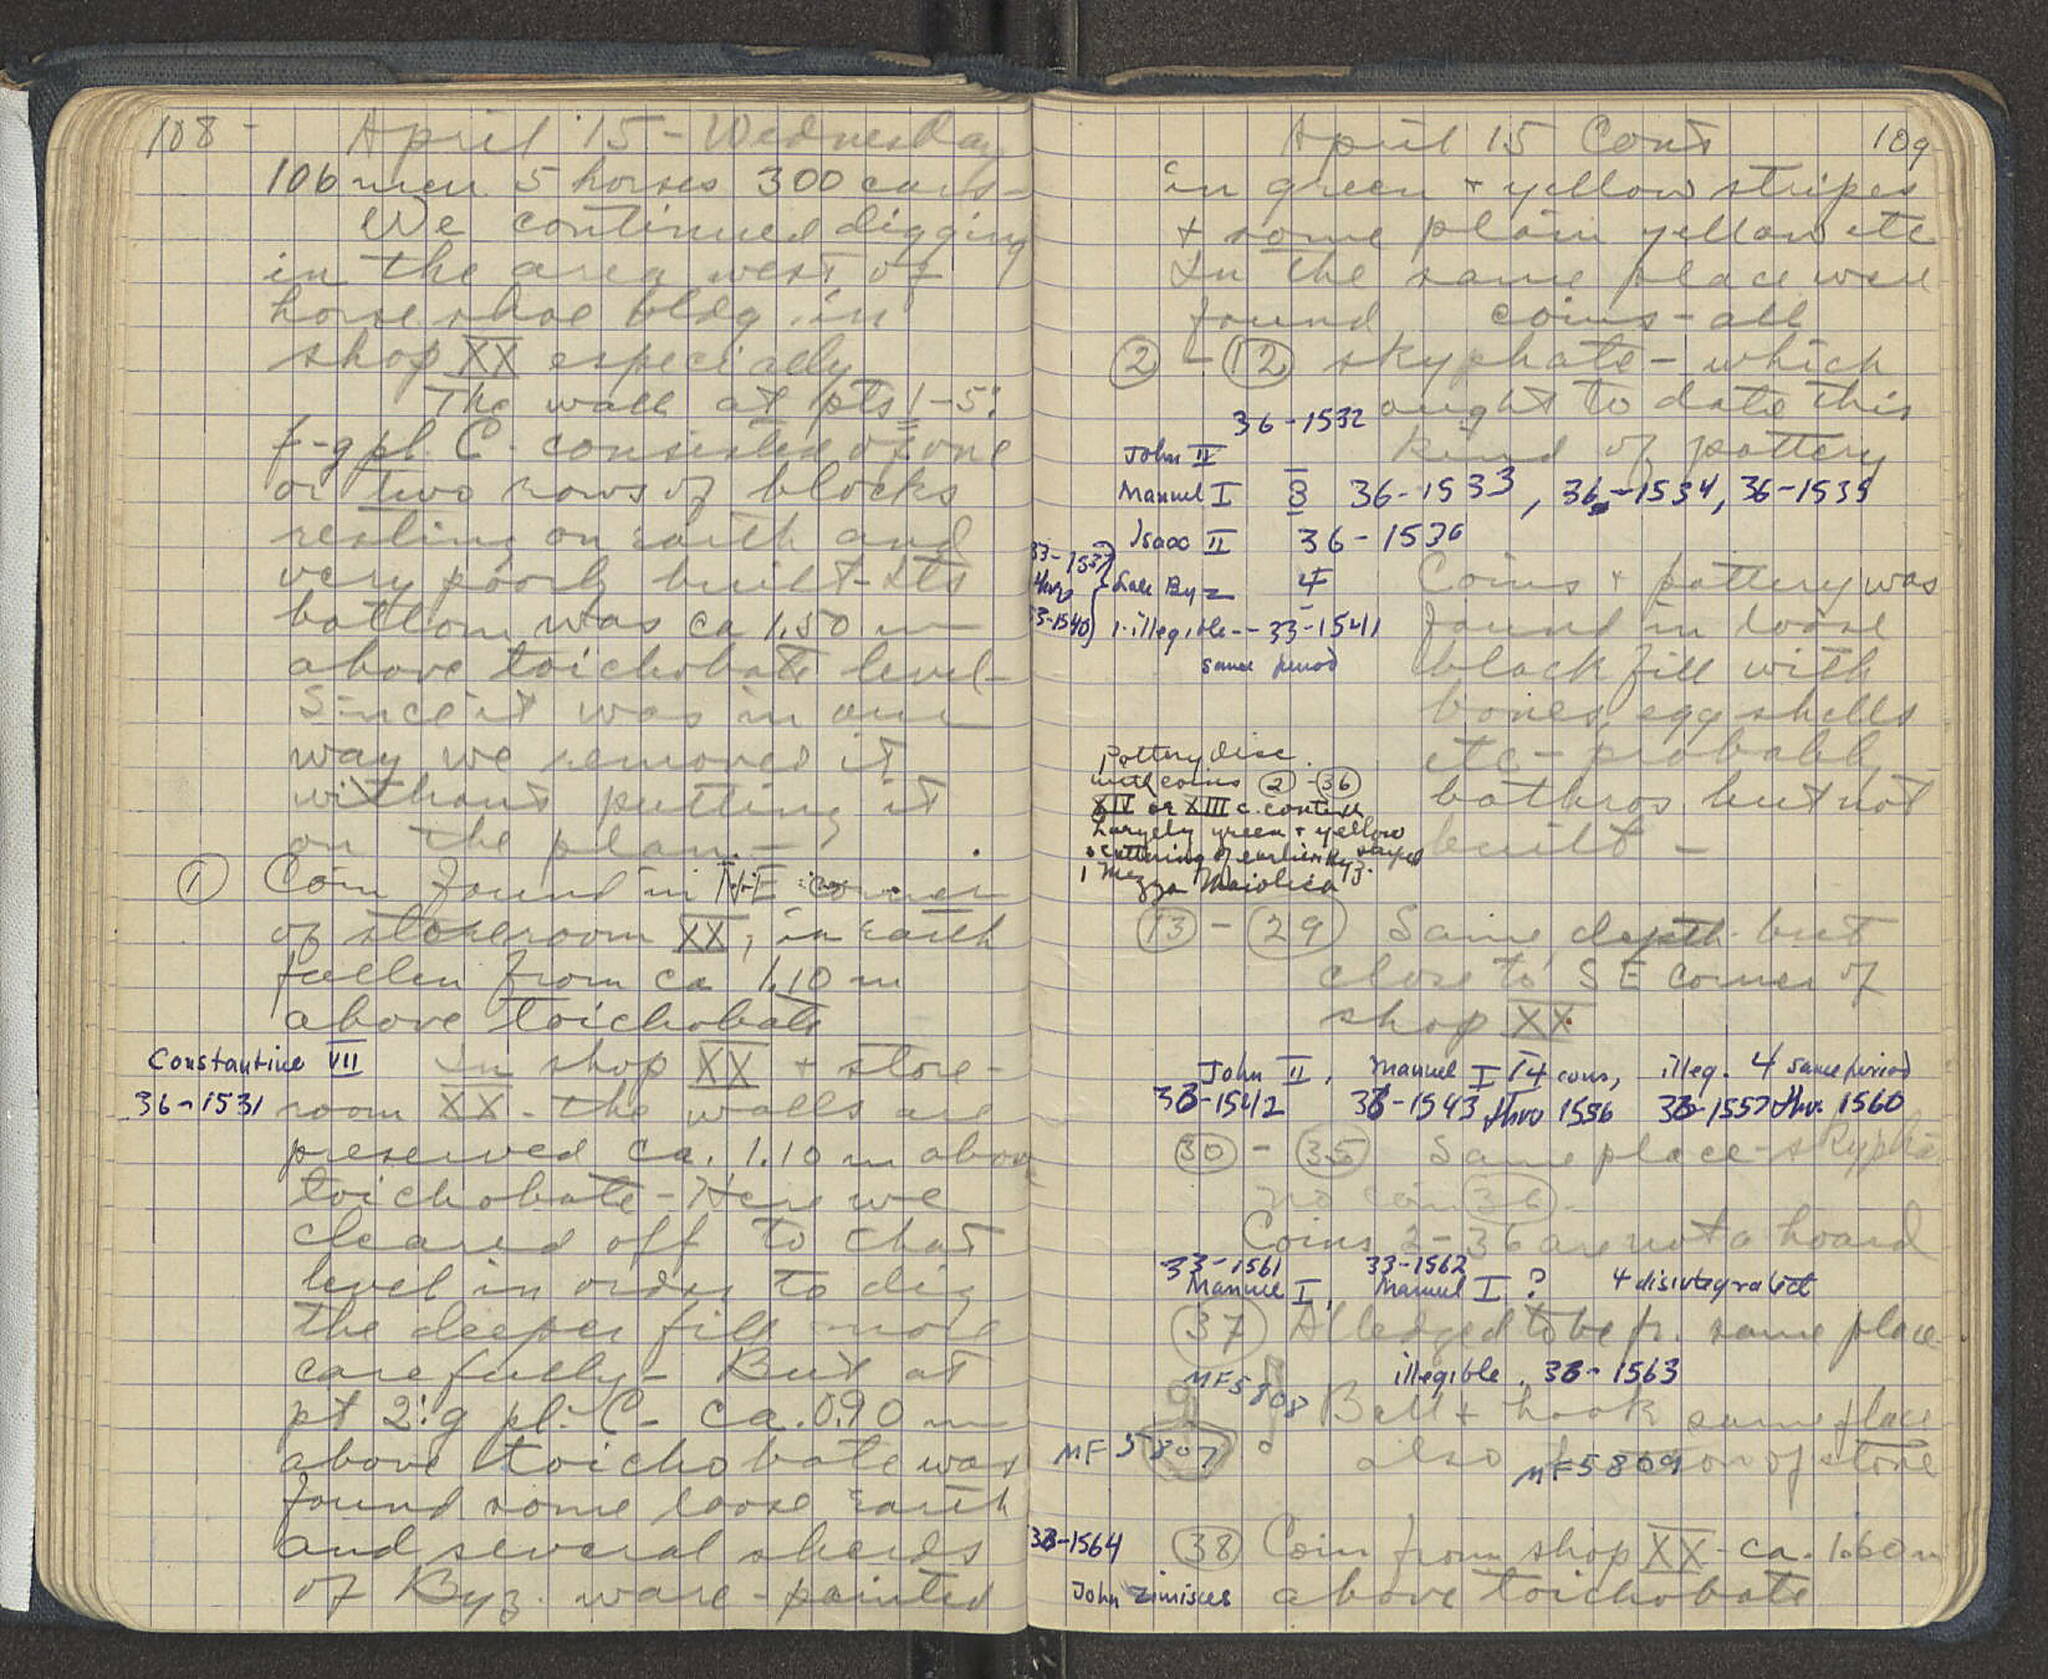 108 - April 15 - Wednesday
106 men 5 horses 300 cars -
We continued digging
in the area west of
horse shoe bldg in
shop XX especially
The wall at pts 1-5:
f-g pl. C. consisted of one
or two rows of blocks
resting on earth and
very poorly built - Its
bottom was ca 1.50 m
above toichobate level -
Since it was in our
way we removed it
without putting it
on the plan. -
① Coin found in NE corner
of storeroom XX, in earth
fallen from ca 1.10 m
above toichobate
Constantine VII
36-1531
In shop XX + store-
room XX - the walls are
preserved ca. 1.10 m above
toichobate - Here we
cleared off to that
level in order to dig
the deeper fill more
carefully - But at
pt 2:g pl. C - ca. 0.90 m
above toichobate was
found some loose earth
and several sherds
of Byz. ware - painted
April 15 Cont 109
in green + yellow stripes
+ some plain yellow etc
In the same place were
found coins - all
② - ⑫ skyphate - which
ought to date this
kind of pottery
36-1532
John II
Manuel I 3 36-1533, 36-1534, 36-1535
Isaac II 36-1536
33-1537
thru
33-1540
Late Byz 4
1 illegible -- 33-1541
same period
Coins + pottery was
found in loose
black fill with
bones, egg shells
etc - probably
bothros but not
built -
Pottery disc.
with coins ② - ㊱
XIV or XIII c. context
Largely green + yellow
scattering of earlier Byz.
1 Mezza Maiolica
⑬ - ㉙ Same depth but
close to SE corner of
shop XX
John II, Manuel I 14 coins, illeg. 4 same period
33-1542 33-1543 thru 1556 33-1557 thru 1560
㉚ - ㉟ Same place - skypha
no coin ㊱ -
Coins 2-36 are not a hoard
33-1561 33-1562
Manuel I, Manuel I ? 4 disintegrated
㊲ Alledged to be fr. same place
illegible. 33-1563
MF 5808
MF 5807
Bell + hook same place
also of stone
MF 5809
33-1564
John Zimisces
㊳ Coin from shop XX - ca. 1.60 m
above toichobate